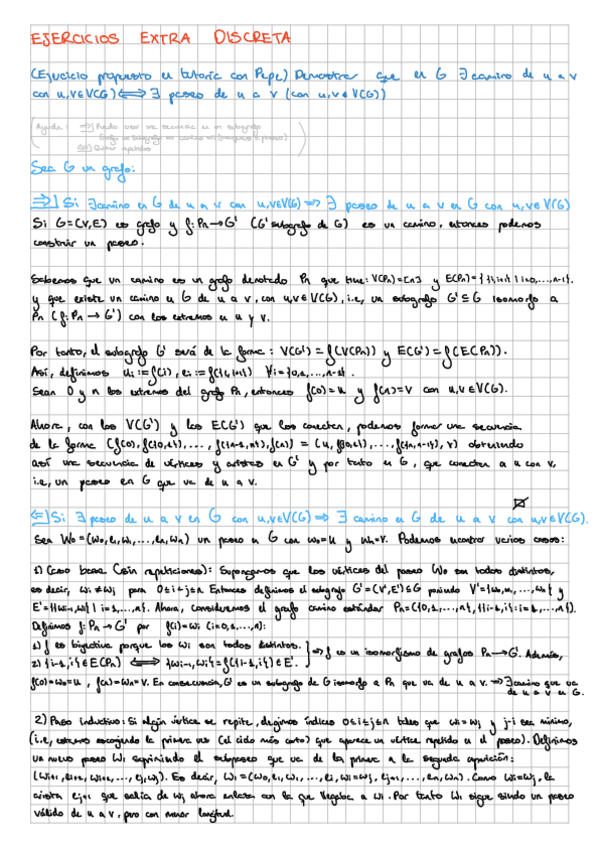 EJERCICIOS EXTRA DISCRETA
(Ejercicio propuesto en tutoría con Pepe) Demostrar que en G ∃ camino de u a v
con u,v∈V(G) ⟺ ∃ paseo de u a v (con u,v∈V(G))
Ayuda: ⇒) Puedo usar una secuencia en un subgrafo
⇐) Quitar repetidos
Sea G un grafo:
⇒) Si ∃ camino en G de u a v con u,v∈V(G) ⟹ ∃ paseo de u a v en G con u,v∈V(G)
Si G=(V,E) es grafo y f: Pn→G' (G' subgrafo de G) es un camino, entonces podemos
construir un paseo.
Sabemos que un camino es un grafo denotado Pn que tiene: V(Pn)=[n] y E(Pn)={{i,i+1} | i=0,...,n-1}.
y que existe un camino en G de u a v, con u,v∈V(G), i.e, un subgrafo G'⊆G isomorfo a
Pn (f: Pn→G') con los extremos u y v.
Por tanto, el subgrafo G' será de la forma: V(G')=f(V(Pn)) y E(G')=f(E(Pn)).
Así, definimos ui:=f(i), ei:=f({i,i+1}) ∀i={0,1,...,n-1}.
Sean 0 y n los extremos del grafo Pn, entonces f(0)=u y f(n)=v con u,v∈V(G).
Ahora, con los V(G') y los E(G') que los conectan, podemos formar una secuencia
de la forma (f(0), f({0,1}), ..., f({n-1,n}), f(n)) = (u, f({0,1}), ..., f({n,n-1}), v) obteniendo
así una secuencia de vértices y aristas en G' y por tanto en G, que conectan a u con v,
i.e, un paseo en G que va de u a v.
⇐) Si ∃ paseo de u a v en G con u,v∈V(G) ⟹ ∃ camino en G de u a v con u,v∈V(G).
Sea W0=(w0,e1,w1,...,en,wn) un paseo en G con w0=u y wn=v. Podemos encontrar varios casos:
1) Caso base (sin repeticiones): Supongamos que los vértices del paseo W0 son todos distintos,
es decir, wi≠wj para 0≤i<j≤n. Entonces definimos el subgrafo G'=(V',E')⊆G poniendo V'={w0,...,wn} y
E'={{wi-1,wi} | i=1,...,n}. Ahora, consideremos el grafo camino estándar Pn=({0,1,...,n},{{i-1,i}:i=1,...,n}).
Definimos f: Pn→G' por f(i)=wi (i=0,1,...,n):
1) f es biyectiva porque los wi son todos distintos.
2) {i-1,i}∈E(Pn) ⟺ {wi-1,wi}=f({i-1,i})∈E'. ⟹ f es un isomorfismo de grafos Pn→G'. Además,
f(0)=w0=u, f(n)=wn=v. En consecuencia, G' es un subgrafo de G isomorfo a Pn que va de u a v. ⟹ ∃ camino que va
de u a v en G.
2) Paso inductivo: Si algún vértice se repite, elegimos índices 0≤i<j≤n tales que wi=wj y j-i sea mínimo,
(i.e, estamos escogiendo la primera vez (el ciclo más corto) que aparece un vértice repetido en el paseo). Definimos
un nuevo paseo W1 suprimiendo el subpaseo que va de la primera a la segunda aparición:
(wi, ei+1, wi+1, ..., ej, wj). Es decir, W1=(w0,e1,w1,...,ei,wi=wj,ej+1,...,en,wn). Como wi=wj, la
arista ej+1 que salía de wj ahora enlaza con la que llegaba a wi. Por tanto W1 sigue siendo un paseo
válido de u a v, pero con menor longitud.